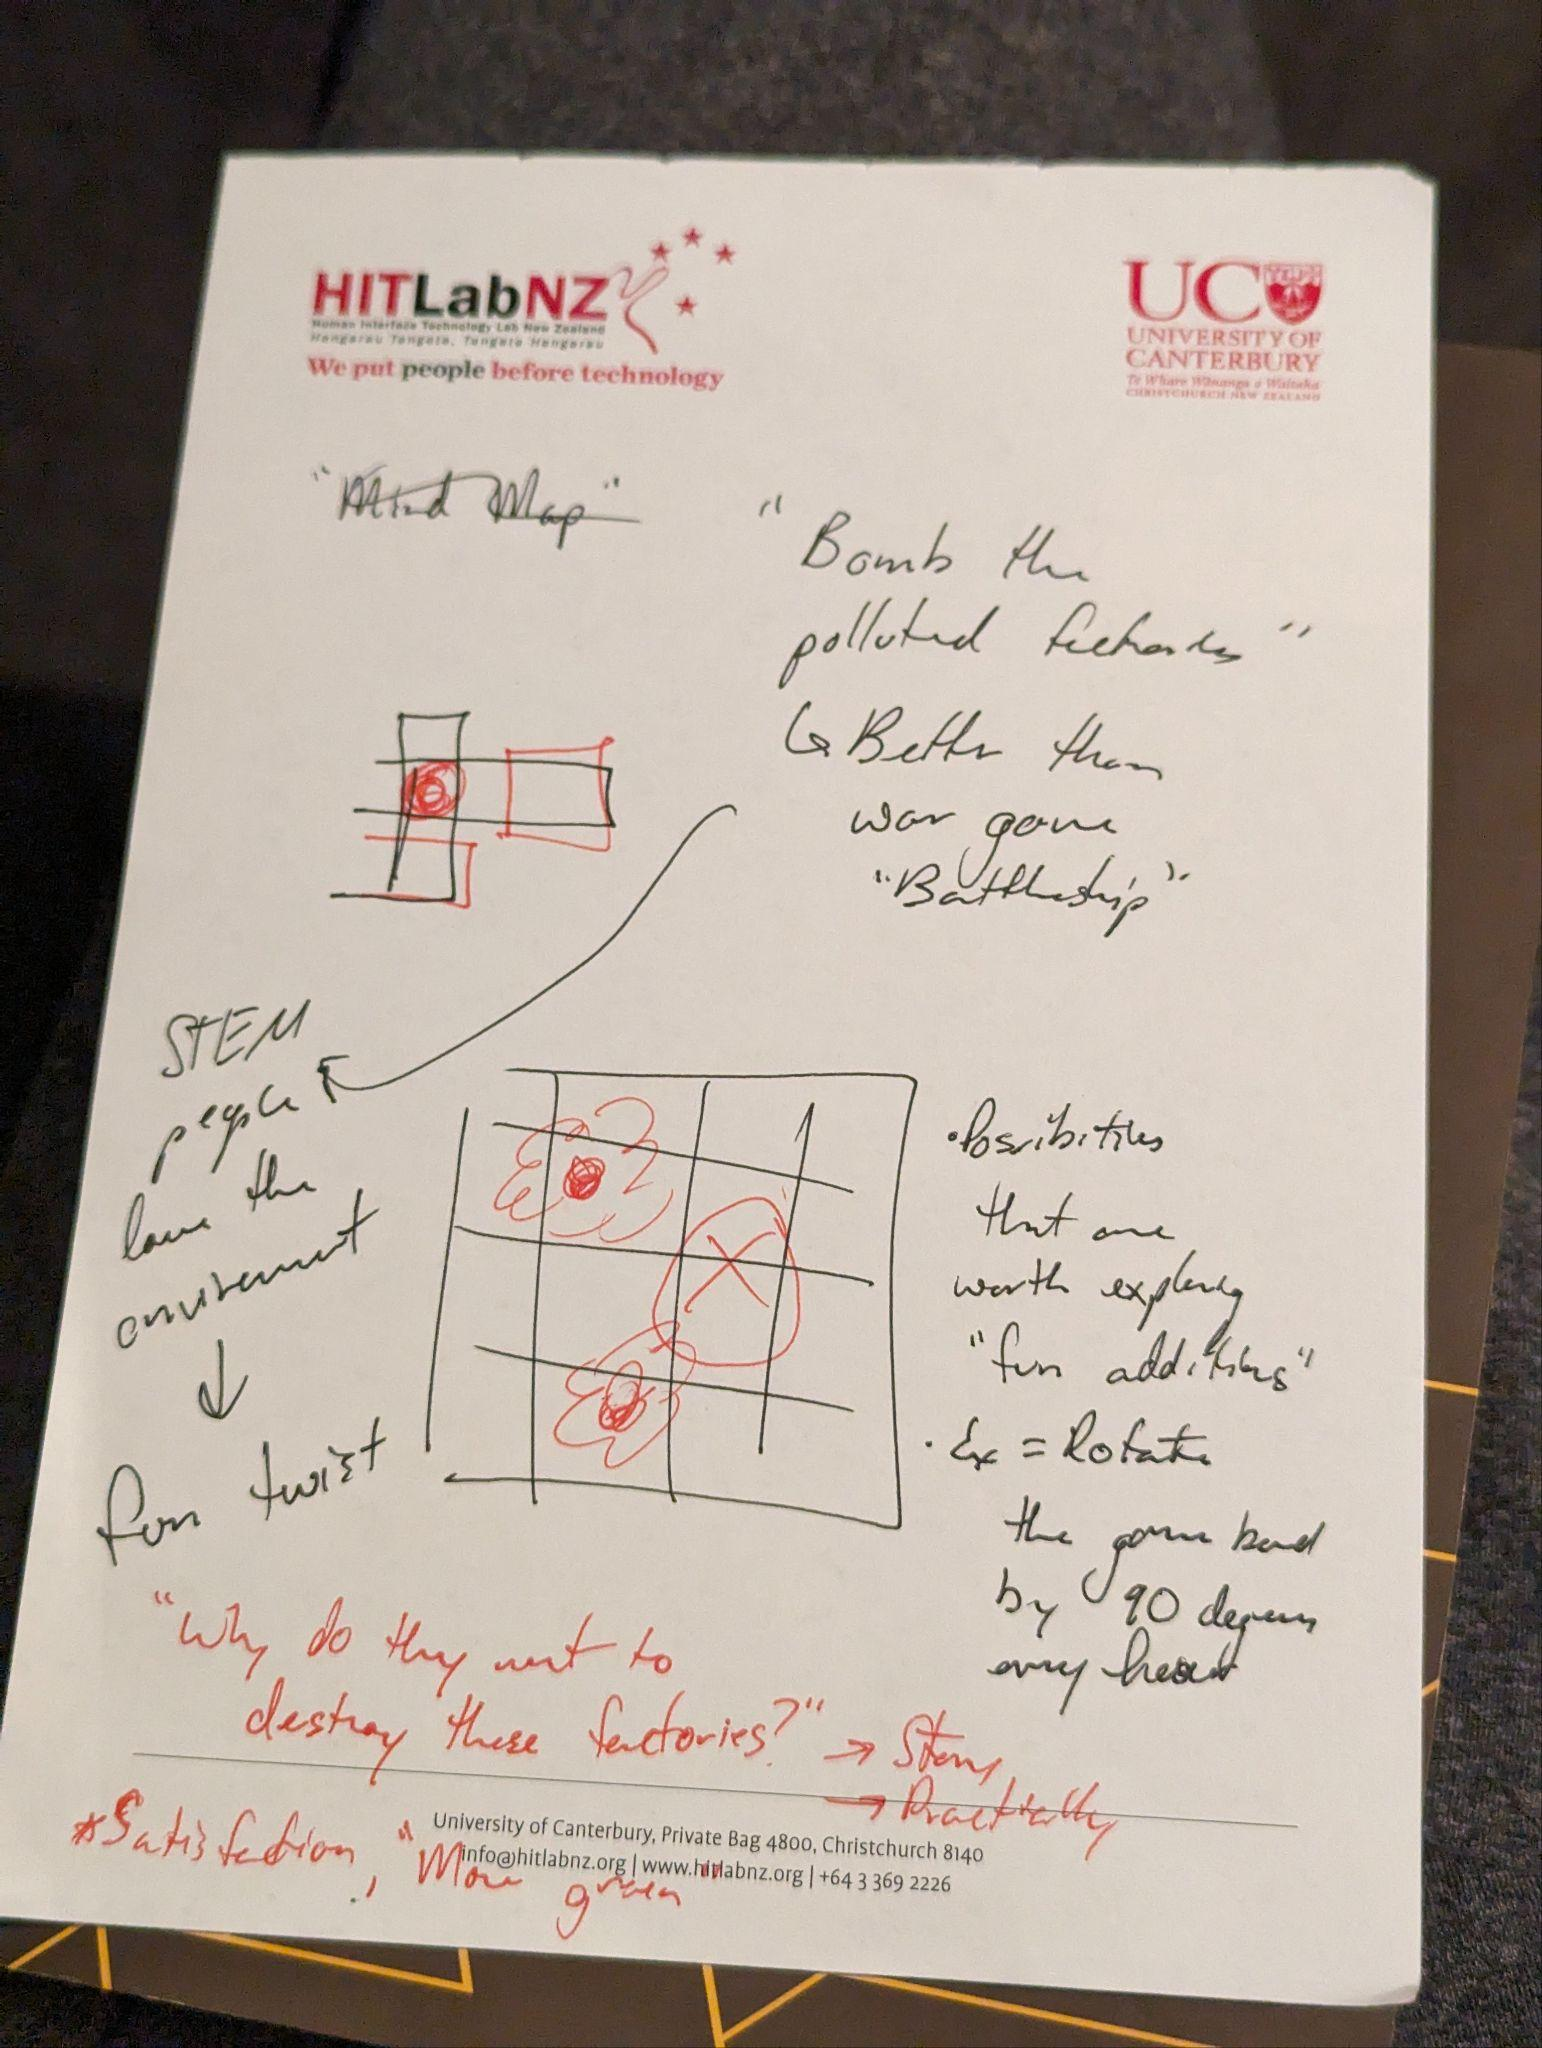 HITLabNZ
Human Interface Technology Lab New Zealand
Hangarau Tangata, Tangata Hangarau
We put people before technology
UC
UNIVERSITY OF
CANTERBURY
Te Whare Wānanga o Waitaha
CHRISTCHURCH NEW ZEALAND
"Mind Map"
"Bomb the
polluted factories"
↳ Better than
war game
"Battleship"
STEM
people
love the
envirement
↓
Fun twist
• Possibities
that are
worth exploring
"fun additions"
• Ex = Rotate
the game board
by 90 degrees
every
"Why do they want to
destroy these factories?" → Story
→ Practically
* Satisfaction, "More green"
University of Canterbury, Private Bag 4800, Christchurch 8140
info@hitlabnz.org | www.hitlabnz.org | +64 3 369 2226